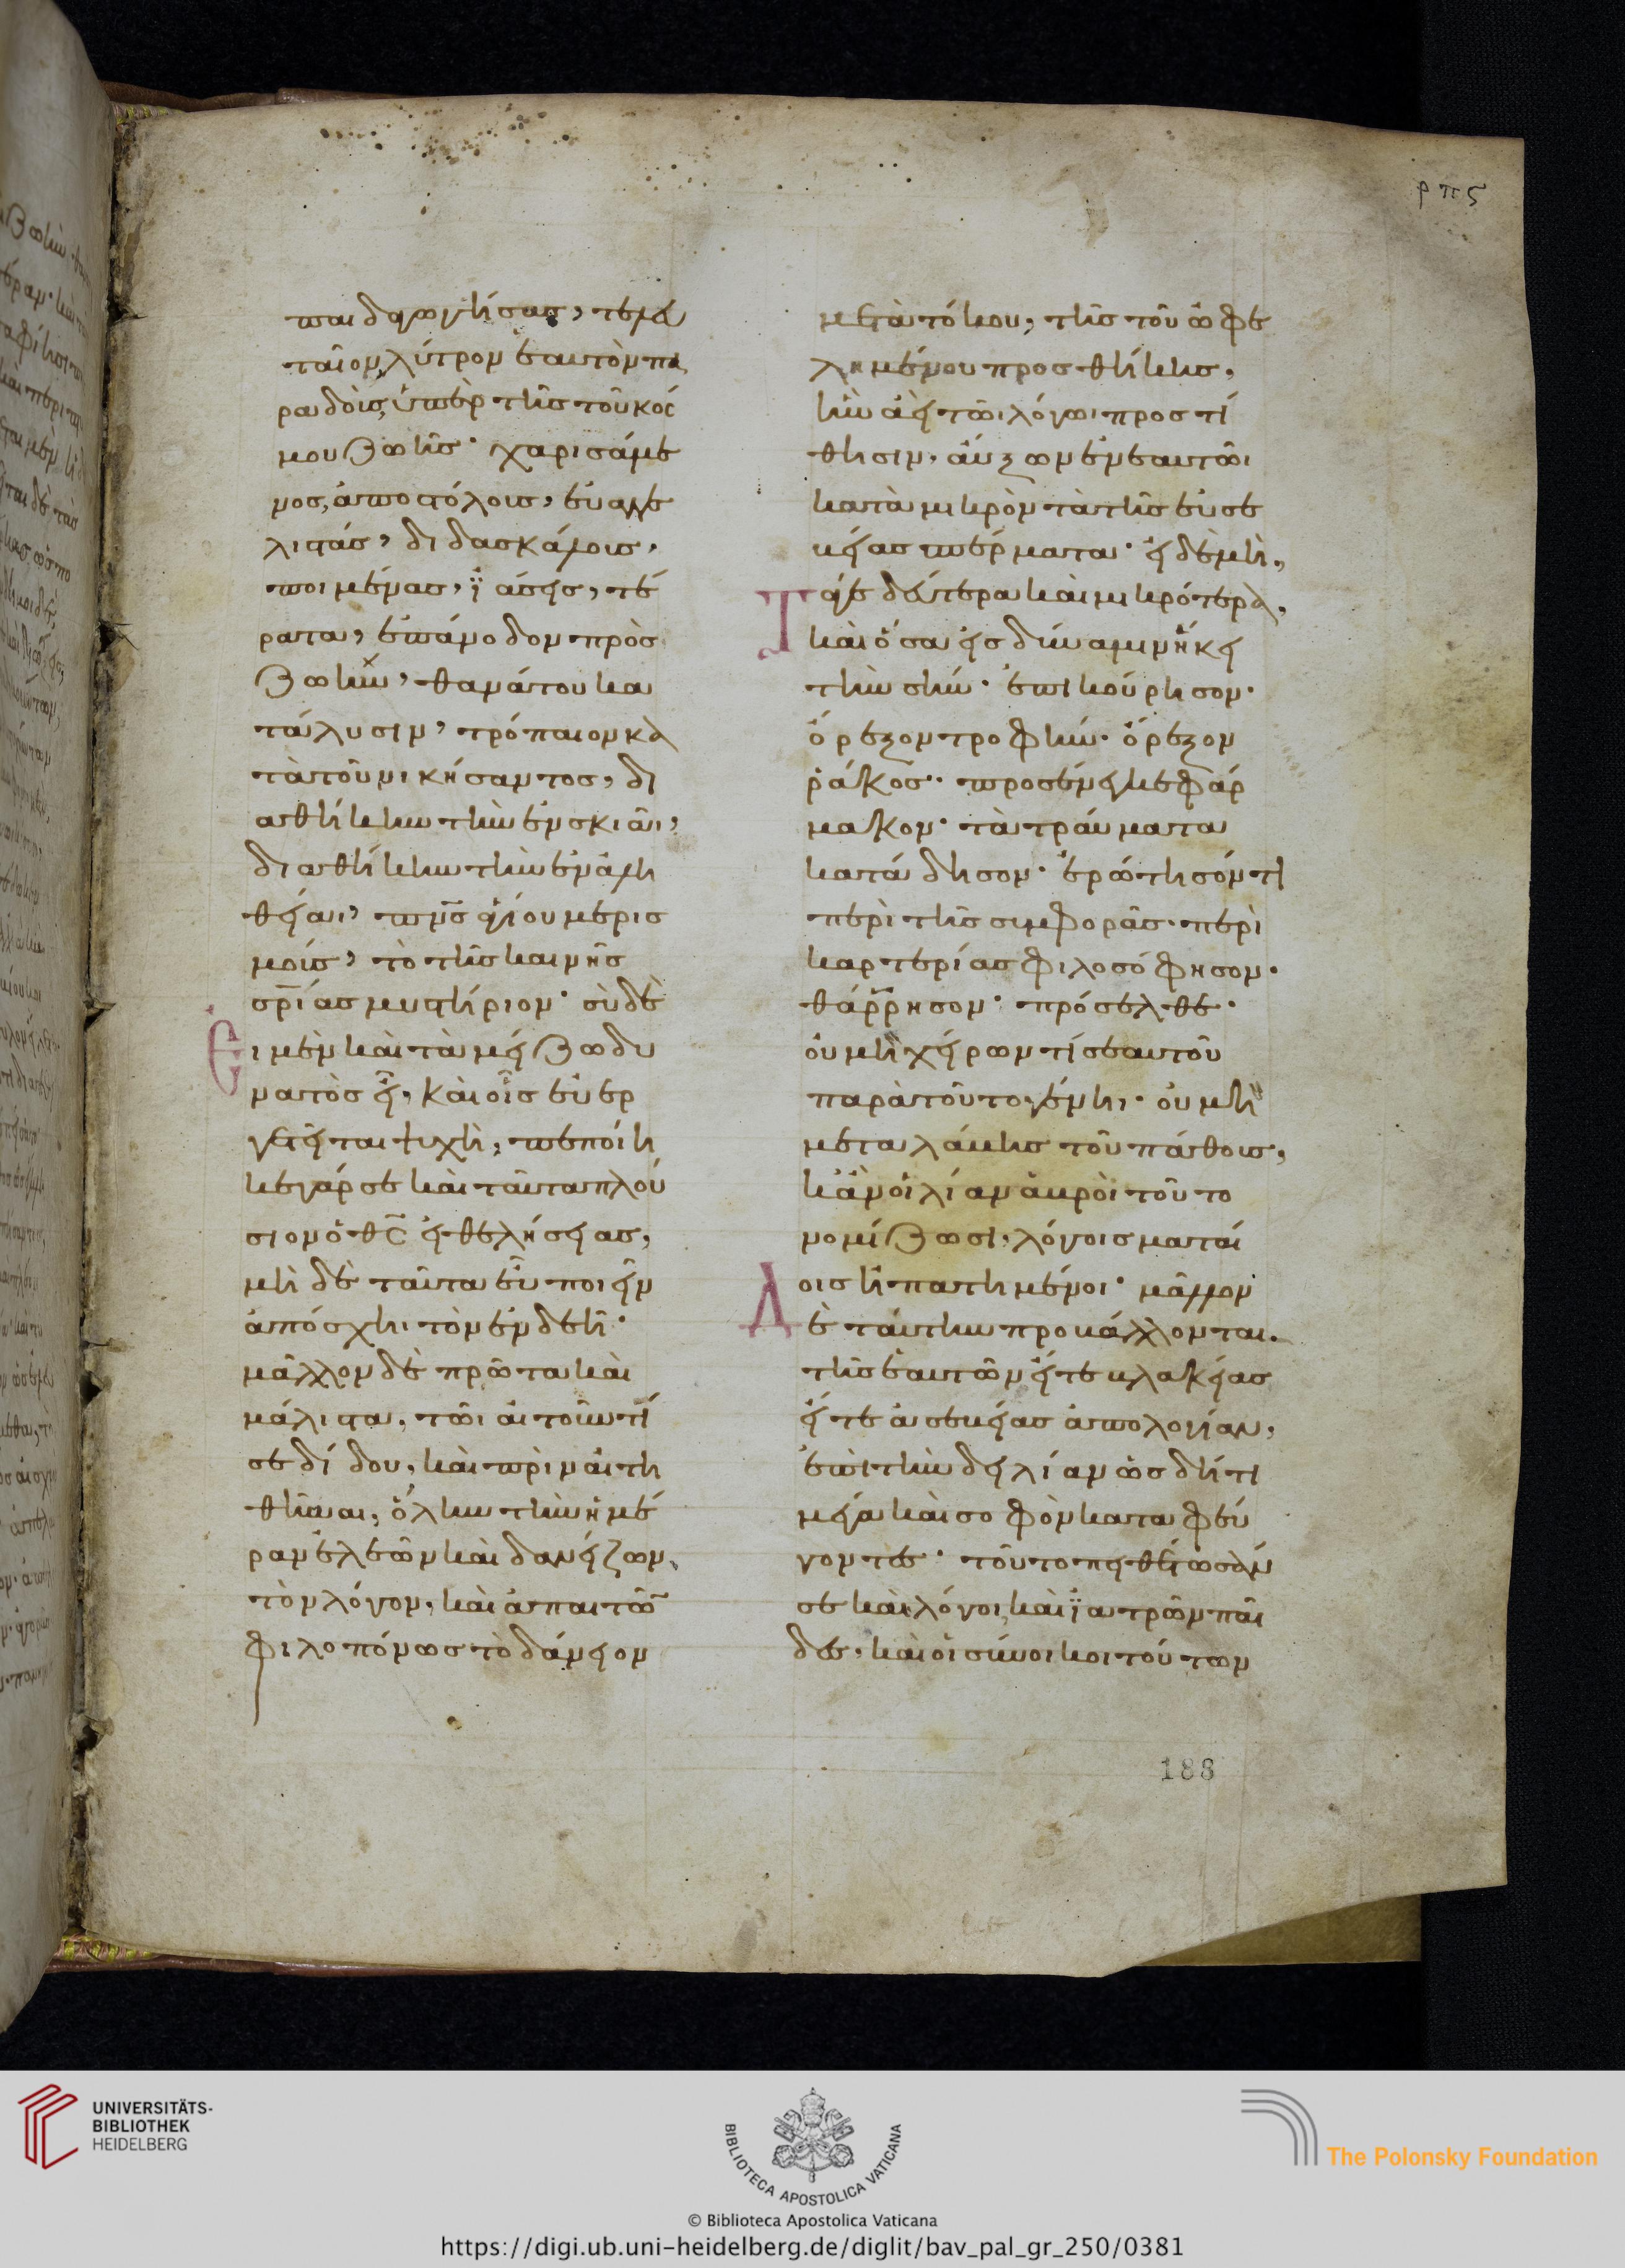 ρπϛ
παιδαγωγήσας, τελευ
ταῖον λύτρον ἑαυτὸν πα
ραδοὺς, ὑπὲρ τῆς τοῦ κόσ
μου ζωῆς· χαρισάμε
νος, ἀποστόλους, εὐαγγε
λιστάς, διδασκάλους,
ποιμένας, ϊάσεις, τέ
ρατα, ἐπάνοδον πρὸς
ζωὴν, θανάτου κα
τάλυσιν, τρόπαιον κα
τὰ τοῦ νικήσαντος, δι
αθήκην τὴν ἐν σκιᾶι,
διαθήκην τὴν ἐν ἀλη
θείαι, πν̅ς ἁγίου μερισ
μούς, τὸ τῆς καινῆς
σρ̅ίας μυστήριον· σὺ δὲ
Εἰ μὲν καὶ τὰ μείζω δυ
νατὸς εἶ, καὶ οἷς εὐερ
γετεῖται ψυχὴ, πεποίη
κε γάρ σε καὶ ταῦτα πλού
σιον ὁ θς̅ εἰ θελήσειας,
μὴ δὲ ταῦτα εὖ ποιεῖν
ἀπόσχηι τὸν ἐν δεῆι·
μᾶλλον δὲ πρῶτα καὶ
μάλιστα, τῶι αἰτοῦντί
σε δίδου, καὶ πρὶν αἰτη
θῆναι, ὅλην τὴν ἡμέ
ραν ἐλεῶν καὶ δανείζων,
τὸν λόγον, καὶ ἀπαιτῶν
φιλοπόνως τὸ δάνειον
μετὰ τόκου, τῆς τοῦ ὠφε
λημένου προσθήκης,
ἣν ἀεὶ τῶι λόγωι προστί
θησιν, αὔξων ἐν ἑαυτῶι
κατὰ μικρὸν τὰ τῆς εὐσε
βείας σπέρματα· εἰ δὲ μὴ,
Τά γε δεύτερα καὶ μικρότερα,
καὶ ὅσα εἰς δύναμιν ἥκει
τὴν σήν· ἐπικούρησον·
ὄρεξον τροφήν· ὄρεξον
ῥάκος· προσένεγκε φάρ
μακον· τὰ τραύματα
κατάδησον· ἐρώτησόν τι
περὶ τῆς συμφορᾶς· περὶ
καρτερίας φιλοσόφησον·
θάρρησον· πρόσελθε·
οὐ μὴ χείρων τί σεαυτοῦ
παρὰ τοῦτο γένηι· οὐ μὴ
μεταλάβηις τοῦ πάθους,
κἂν οἱ λίαν ἁβροὶ τοῦτο
νομίζωσι, λόγοις ματαί
οις ἠπατημένοι· μᾶλλον
Δὲ ταύτην προβάλλονται,
τῆς ἑαυτῶν εἴτε βλακείας
εἴτε ἀσεβείας ἀπολογίαν,
ἐπὶ τὴν δειλίαν ὡς δή τι
μέγα καὶ σοφὸν καταφεύ
γοντες· τοῦτο πειθέτωσάν
σε καὶ λόγοι, καὶ ϊατρῶν παῖ
δες, καὶ οἱ σύνοικοι τούτων
188
UNIVERSITÄTS-
BIBLIOTHEK
HEIDELBERG
BIBLIOTECA APOSTOLICA VATICANA
The Polonsky Foundation
© Biblioteca Apostolica Vaticana
https://digi.ub.uni-heidelberg.de/diglit/bav_pal_gr_250/0381